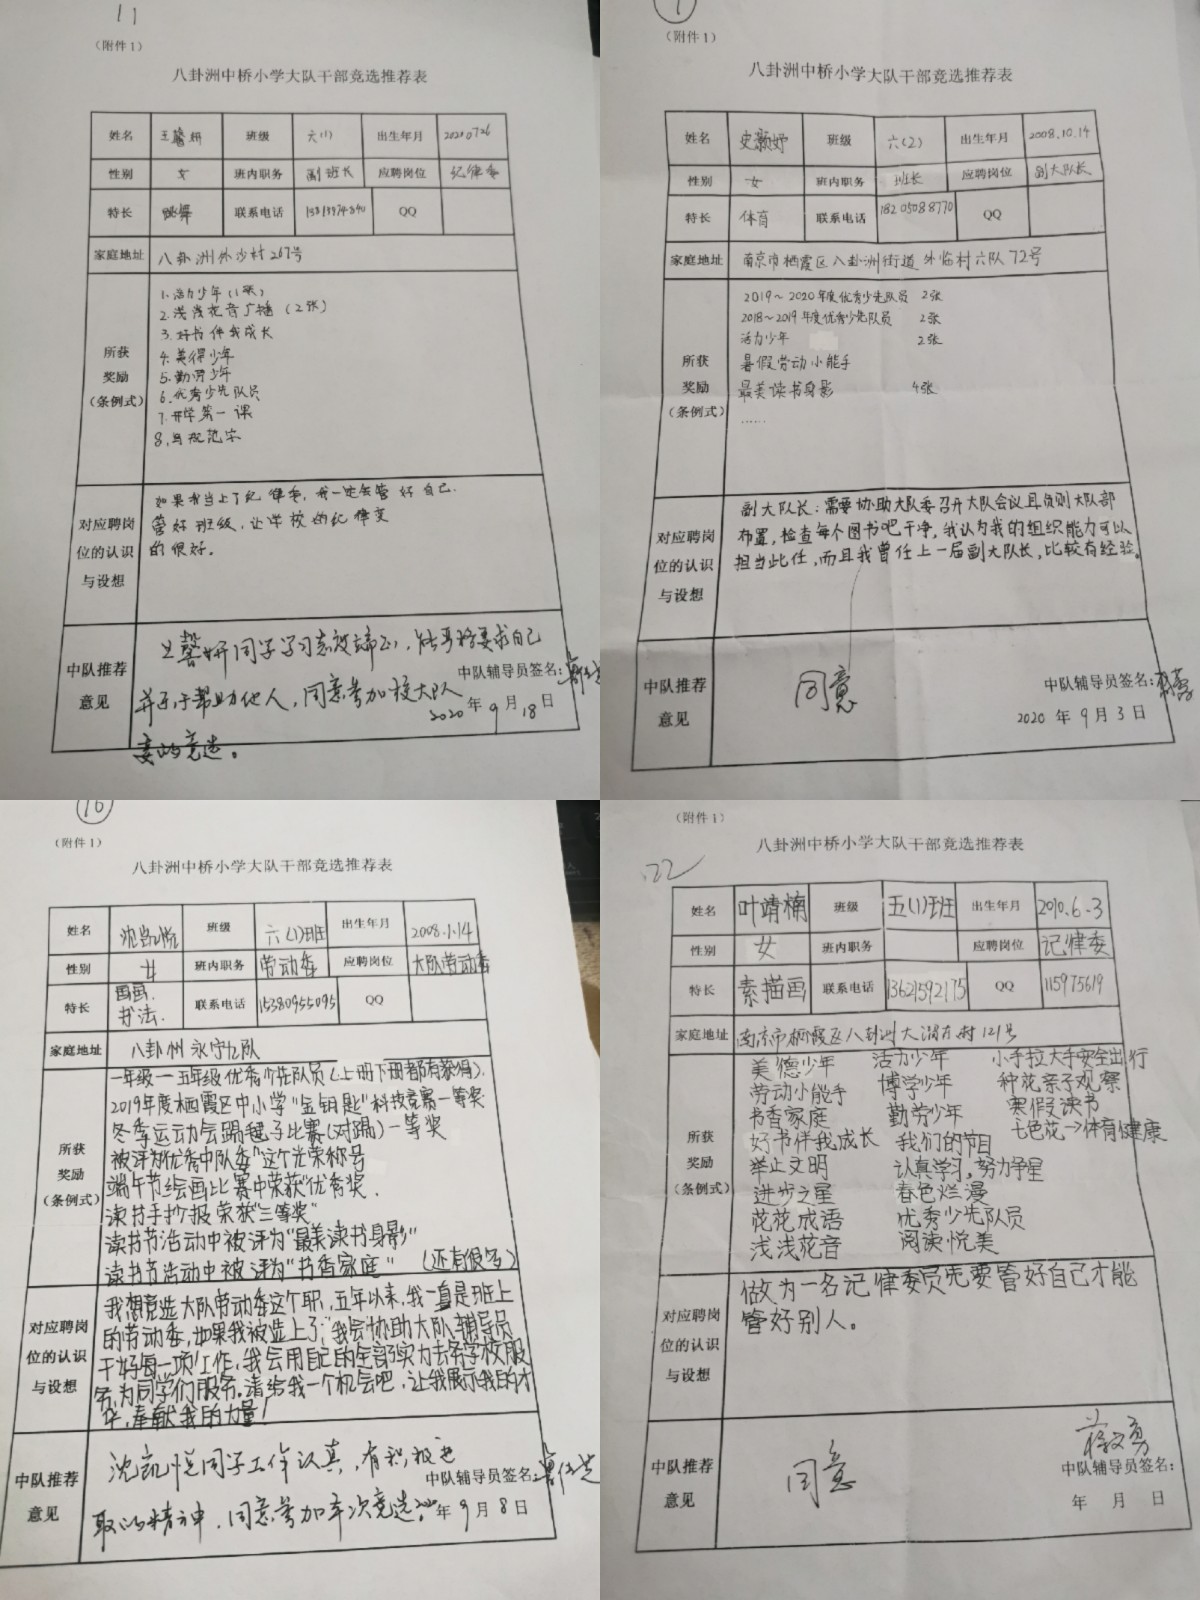 11
(附件1)
八卦洲中桥小学大队干部竞选推荐表
姓名 王馨妍 班级 六(1) 出生年月 20200726
性别 女 班内职务 副班长 应聘岗位 纪律委
特长 跳舞 联系电话 QQ
家庭地址 八卦洲外沙村267号
所获奖励(条例式)
1.活力少年(1张)
2.浅浅花音广播(2张)
3.好书伴我成长
4.美得少年
5.勤劳少年
6.优秀少先队员
7.开学第一课
8.
对应聘岗位的认识与设想
如果我当上了纪律委,我一定会管好自己.
管好班级,让学校的纪律变
的很好。
中队推荐意见
王馨妍同学学习态度端正,能严格要求自己
并乐于帮助他人,同意参加校大队
委的竞选。
中队辅导员签名:
2020年9月18日
1
(附件1)
八卦洲中桥小学大队干部竞选推荐表
姓名 史颢妤 班级 六(2) 出生年月 2008.10.14
性别 女 班内职务 班长 应聘岗位 副大队长
特长 体育 联系电话 18205088770 QQ
家庭地址 南京市栖霞区八卦洲街道外临村六队72号
所获奖励(条例式)
2019~2020年度优秀少先队员 2张
2018~2019年度优秀少先队员 2张
活力少年 2张
暑假劳动小能手
最美读书身影 4张
……
对应聘岗位的认识与设想
副大队长:需要协助大队委召开大队会议且负则大队部
布置,检查每个图书吧干净,我认为我的组织能力可以
担当此任,而且我曾任上一届副大队长,比较有经验。
中队推荐意见
同意
中队辅导员签名:
2020年9月3日
10
(附件1)
八卦洲中桥小学大队干部竞选推荐表
姓名 沈凯悦 班级 六(1)班 出生年月 2008.1.14
性别 女 班内职务 劳动委 应聘岗位 大队劳动委
特长 国画.书法. 联系电话 15380955095 QQ
家庭地址 八卦州永宁九队
所获奖励(条例式)
一年级一五年级优秀少先队员(上册下册都有获得).
2019年度栖霞区中小学“金钥匙”科技竞赛一等奖
冬季运动会踢毽子比赛(对踢)一等奖
被评为“优秀中队委”这个光荣称号
端午节绘画比赛中荣获“优秀奖.
读书手抄报荣获“三等奖”
读书节活动中被评为“最美读书身影”
读书节活动中被评为“书香家庭” (还有很多)
对应聘岗位的认识与设想
我想竞选大队劳动委这个职,五年以来,我一直是班上
的劳动委,如果我被选上了,我会协助大队辅导员
干好每一项工作,我会用自己的全部实力去为学校服
务,为同学们服务.请给我一个机会吧,让我展示我的才
华,奉献我的力量!
中队推荐意见
沈凯悦同学工作认真,有积极进
取的精神,同意参加本次竞选。
中队辅导员签名:
2020年9月8日
22
(附件1)
八卦洲中桥小学大队干部竞选推荐表
姓名 叶靖楠 班级 五(1)班 出生年月 2010.6.3
性别 女 班内职务 应聘岗位 记律委
特长 素描画 联系电话 13621592175 QQ 115975619
家庭地址 南京市栖霞区八卦洲大湖东村121号
所获奖励(条例式)
美德少年 活力少年 小手拉大手安全出行
劳动小能手 博学少年 种花亲子观察
书香家庭 勤劳少年 寒假读书
好书伴我成长 我们的节目 七色花→体育健康
举止文明 认真学习,努力争星
进步之星 春色烂漫
花花成语 优秀少先队员
浅浅花音 阅读悦美
对应聘岗位的认识与设想
做为一名记律委员先要管好自己才能
管好别人。
中队推荐意见
同意
中队辅导员签名:
年 月 日